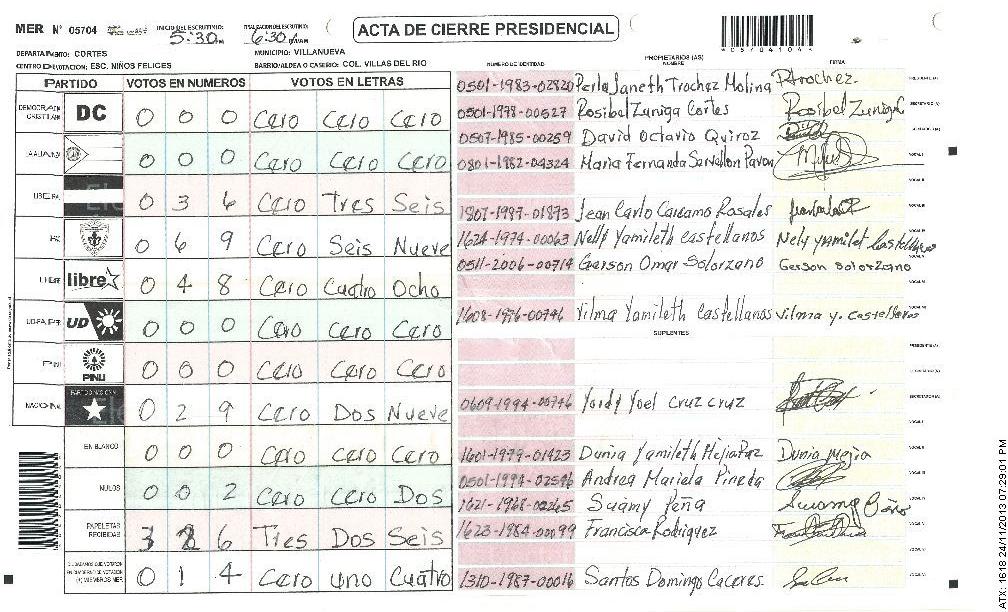 MER Nº 05704 INICIO DEL ESCRUTINIO: 5:30 FINALIZACION DEL ESCRUTINIO: 6:30
ACTA DE CIERRE PRESIDENCIAL
DEPARTAMENTO: CORTES MUNICIPIO: VILLANUEVA
CENTRO DE VOTACION: ESC. NIÑOS FELICES BARRIO/ALDEA O CASERIO: COL. VILLAS DEL RIO
PARTIDO VOTOS EN NUMEROS VOTOS EN LETRAS
DEMOCRACIA CRISTIANA DC 0 0 0 Cero Cero Cero
0 0 0 Cero Cero Cero
LIBERAL 0 3 6 Cero Tres Seis
0 6 9 Cero Seis Nueve
LIBRE libre 0 4 8 Cero Cuatro Ocho
UD 0 0 0 Cero Cero Cero
PINU 0 0 0 Cero Cero Cero
NACIONAL 0 2 9 Cero Dos Nueve
EN BLANCO 0 0 0 Cero Cero Cero
NULOS 0 0 2 Cero Cero Dos
PAPELETAS RECIBIDAS 3 2 6 Tres Dos Seis
CIUDADANOS QUE VOTARON EN CUADERNO DE VOTACION (+) MIEMBROS MER 0 1 4 Cero uno Cuatro
NUMERO DE IDENTIDAD PROPIETARIOS (AS) NOMBRE FIRMA
0501-1983-02820 Perla Janeth Trochez Molina Ptrochez PRESIDENTE (A)
0501-1978-00527 Rosibal Zuniga Cortes Rosibal Zuniga SECRETARIO (A)
0507-1985-00259 David Octavio Quiroz
0801-1982-04324 Maria Fernanda Servellon Pavon VOCAL I
VOCAL II
1807-1987-01873 Jean Carlo Carcamo Rosales VOCAL III
1624-1974-00063 Nelly Yamileth Castellanos Nely yamilet Castellanos VOCAL IV
0511-2006-00714 Gerson Omar Solorzano Gerson Solorzano VOCAL V
VOCAL VI
1608-1976-00746 Vilma Yamileth Castellanos Vilma y. Castellanos VOCAL VII
SUPLENTES
PRESIDENTE (A)
SECRETARIO (A)
0609-1994-00746 Yordy Yoel Cruz cruz
1601-1979-01423 Dunia Yamileth Mejia Paz Dunia Mejia VOCAL II
0501-1994-02596 Andrea Mariela Pineda VOCAL III
1621-1968-00265 Suamy Peña VOCAL IV
1623-1984-00099 Francisca Rodriguez VOCAL V
1310-1987-00016 Santos Domingo Caceres
ATX: 1618 24/11/2013 07:29:01 PM